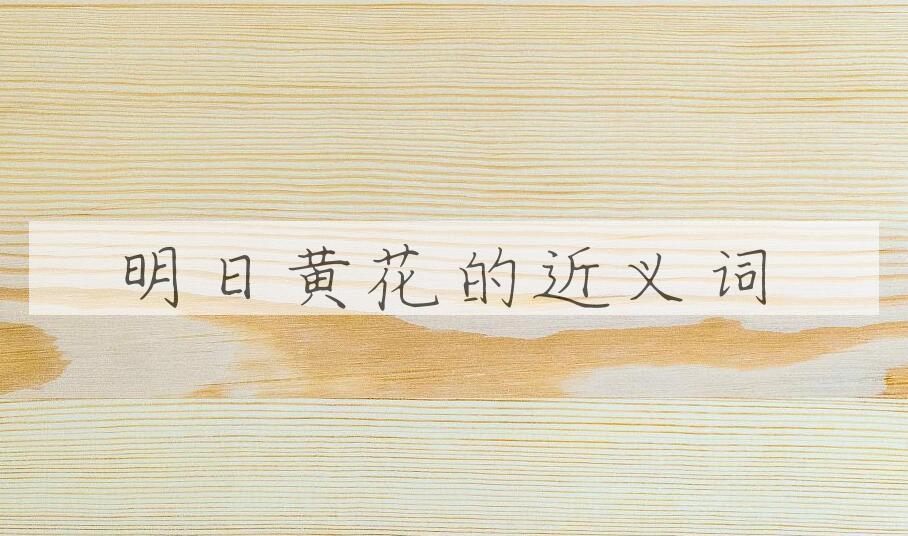 明日黄花的近义词